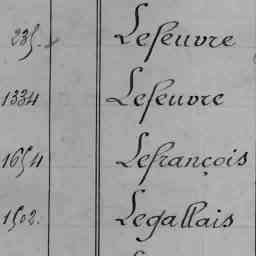 235. Lefeuvre
1334 Lefeuvre
1654 Lefrançois
1502. Legallais